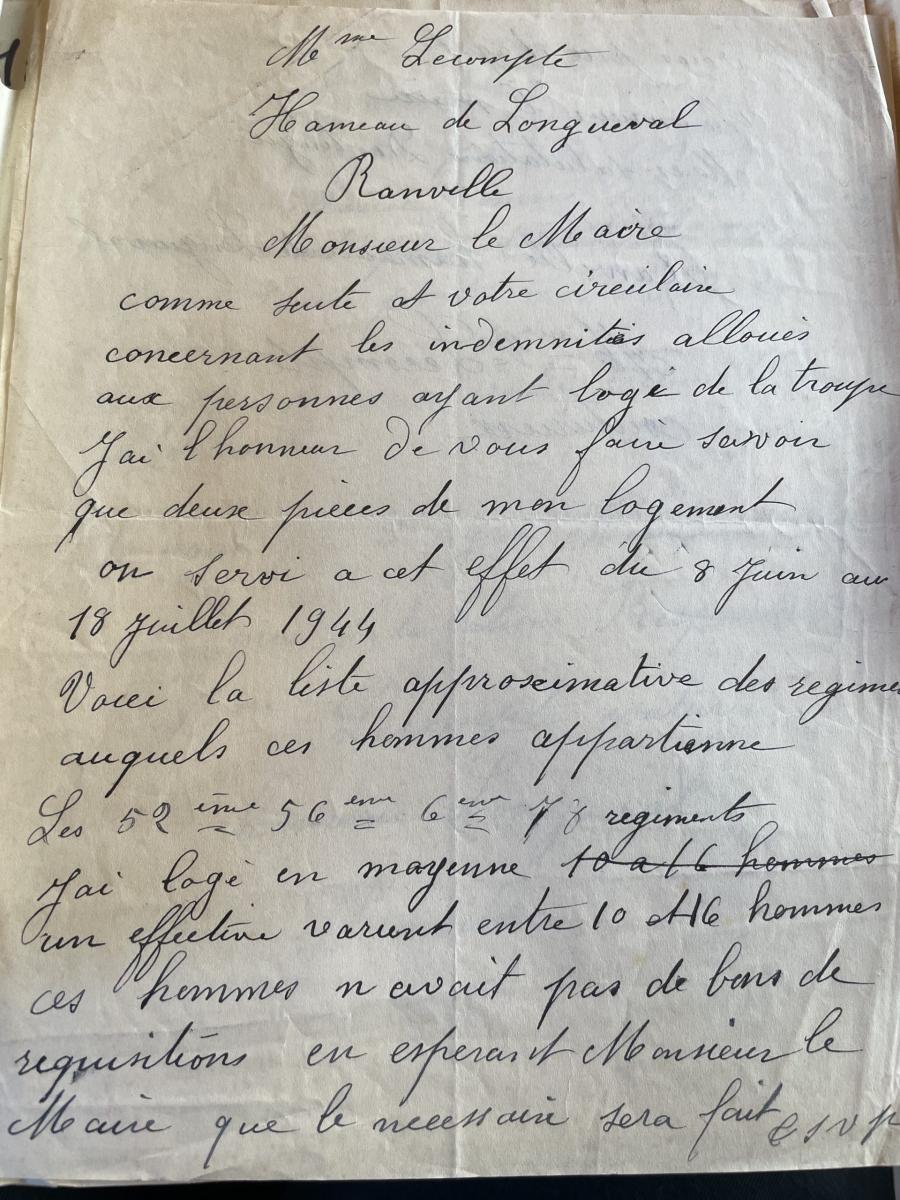 Mme Lecompte
Hameau de Longueval
Ranville
Monsieur le Maire
comme suite at votre circulaire
concernant les indemnités alloués
aux personnes ayant logé de la troupe
J'ai l honneur de vous faire savoir
que deux pièces de mon logement
on servi a cet effet du 8 Juin au
18 Juillet 1944
Voici la liste approximative des regime
auquels ces hommes appartienne
Les 52 ème 56 eme 6 eme 78 regiments
J'ai logé en mayenne 10 a 16 hommes
un effective varient entre 10 et 16 hommes
ces hommes n avait pas de bons de
requisitions en esperant Monsieur le
Maire que le necessaire sera fait
s v p